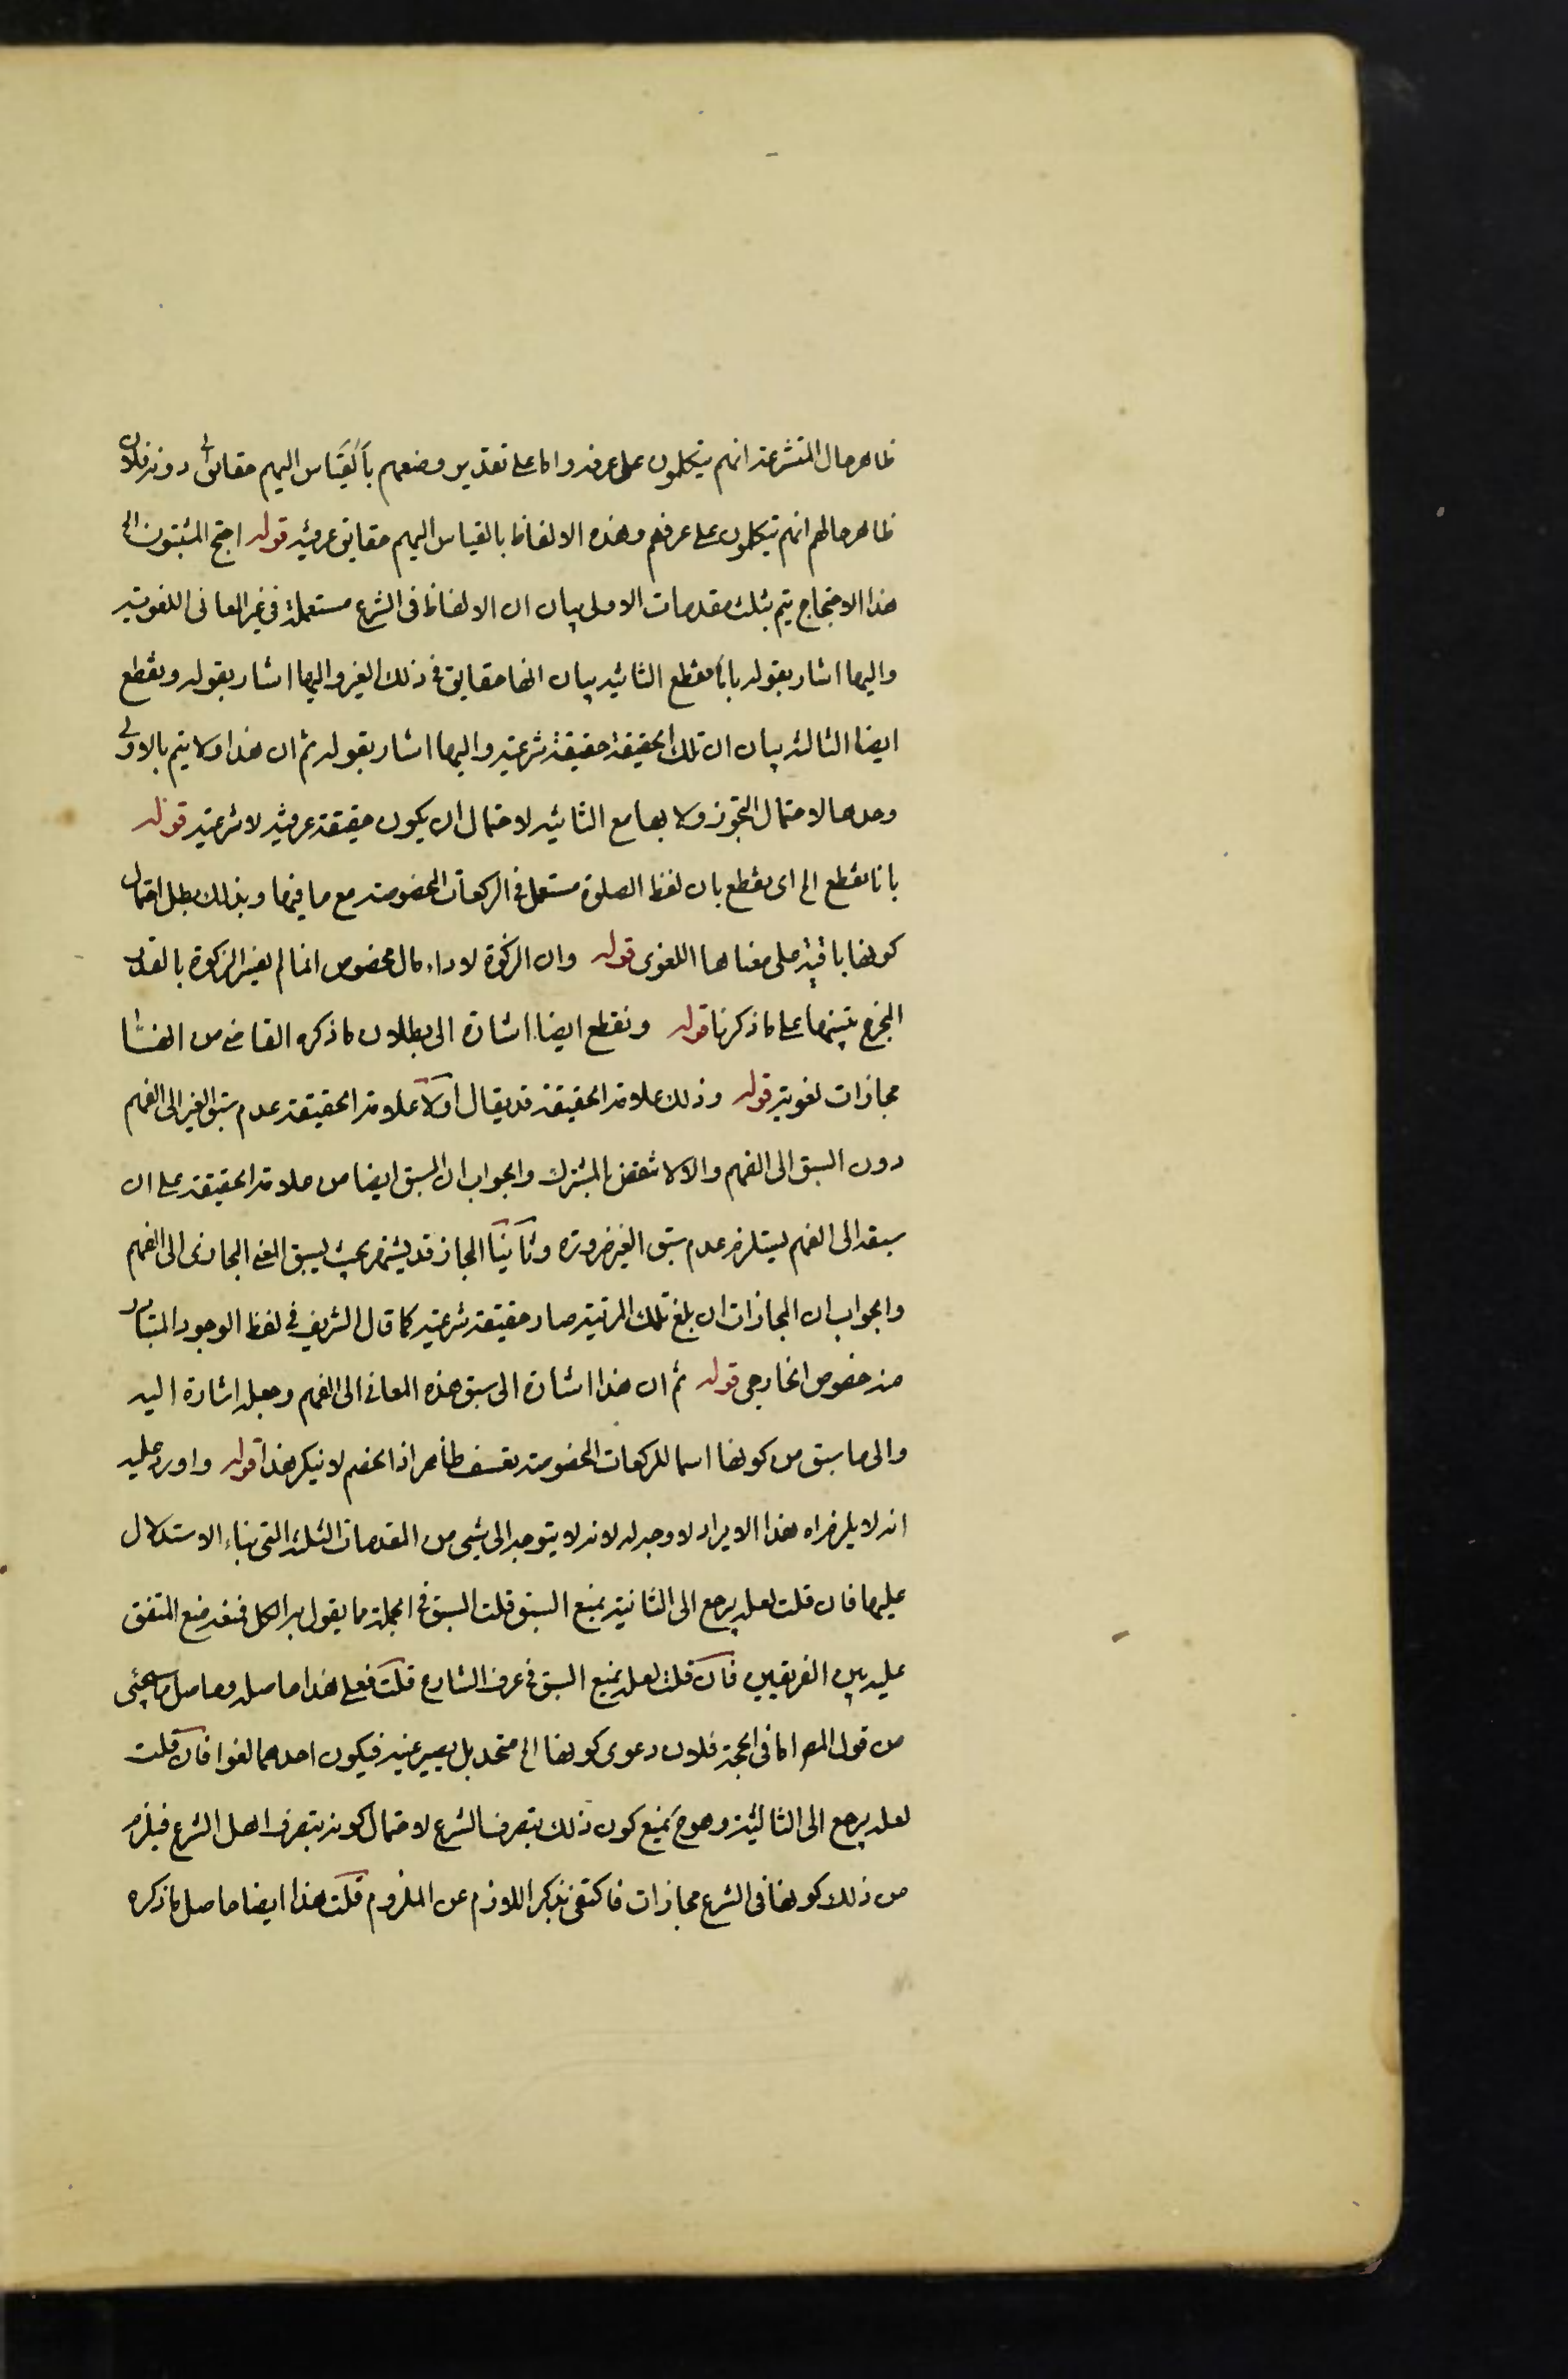 ظاهر حال المتشرعة انهم يتكلمون على عرفه واما على تقدير وضعهم بالقياس اليهم حقايق دونه فلان
ظاهر حالهم انهم يتكلمون على عرفهم وهذه الالفاظ بالقياس اليهم حقايق عرفية قوله احتج المثبتون الخ
هذا الاحتجاج يتم بثلث مقدمات الاولى بيان ان الالفاظ فى الشرع مستعملة فى غير المعانى اللغوية
واليها اشار بقوله بانا نقطع الثانية بيان انها حقايق فى ذلك الغير واليها اشار بقوله ونقطع
ايضا الثالثة بيان ان تلك الحقيقة حقيقة شرعية واليها اشار بقوله ثم ان هذا ولا يتم بالاولى
وحدها لاحتمال التجوز ولا بها مع الثانية لاحتمال ان يكون حقيقة عرفية لا شرعية قوله
بانا نقطع الخ اى نقطع بان لفظ الصلوة مستعمل فى الركعات المخصوصة مع ما فيها وبذلك بطل احتمال
كونها باقية على معناها اللغوى قوله وان الزكوة لاداء مال مخصوص انما لم يفسر الزكوة بالقدر
المخرج تنبيها على ما ذكرنا قوله ونقطع ايضا اشارة الى بطلان ما ذكره القاضى من انها
مجازات لغوية قوله وذلك علامة الحقيقة قد يقال اولا علامة الحقيقة عدم سبق الغير الى الفهم
دون السبق الى الفهم والا لانتقض بالمشترك والجواب ان السبق ايضا من علامة الحقيقة على ان
سبقه الى الفهم يستلزم عدم سبق الغير ضرورة وثانيا المجاز قد يشتهر بحيث يسبق المعنى المجازى الى الفهم
والجواب ان المجازات ان بلغ تلك المرتبة صار حقيقة شرعية كما قال الشريف فى لفظ الوجود المتبادر
منه خصوص الخارجى قوله ثم ان هذا اشارة الى سبق هذه المعانى الى الفهم وجعله اشارة اليه
والى ما سبق من كونها اسما للركعات المخصوصة تعسف ظاهر اذ الخصم لا ينكر هذا قوله واورد عليه
انه لا يلزم اه هذا الايراد لا وجه له لانه لا يتوجه الى شئ من المقدمات الثلثة التى بناء الاستدلال
عليها فان قلت لعله يرجع الى الثانية بمنع السبق قلت السبق فى الجملة مما يقول به الكل فمنعه منع المتفق
عليه بين الفريقين فان قلت لعله يمنع السبق فى عرف الشارع قلت فعلى هذا حاصله وحاصل ما سيجئ
من قول المصر اما فى الحجة فلان دعوى كونها الخ متحد بل يصير عينه فيكون احدهما لغوا فان قلت
لعله يرجع الى الثالثة وهو ح يمنع كون ذلك بتصرف الشرع لاحتمال كونه بتصرف اهل الشرع فيلزم
من ذلك كونها فى الشرع مجازات فاكتفى بذكر اللازم عن الملزوم قلت هذا ايضا حاصل ما ذكره